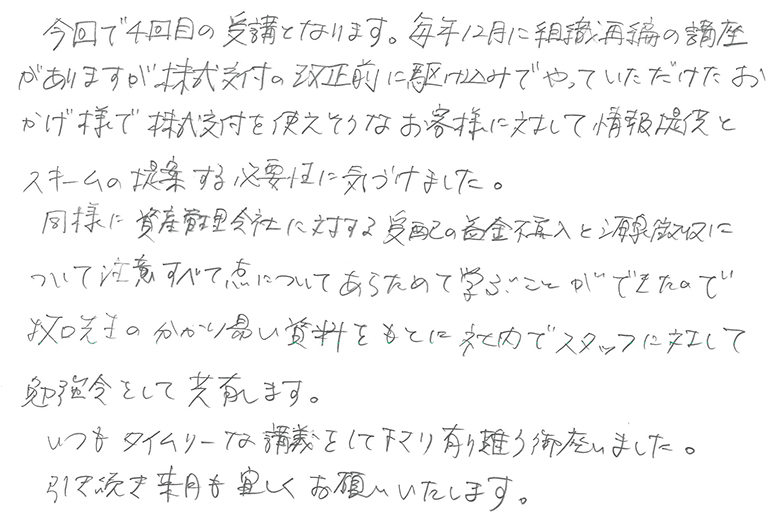 今回で4回目の受講となります。毎年12月に組織再編の講座
がありますが株式交付の改正前に駆け込みでやっていただけたお
かげ様で株式交付を使えそうなお客様に対して情報提供と
スキームの提案する必要性に気づけました。
同様に資産管理会社に対する受配の益金不算入と源泉徴収に
ついて注意すべて点についてあらためて学ぶことができたので
牧口先生の分かり易い資料をもとに社内でスタッフに対して
勉強会をして共有します。
いつもタイムリーな講義をして下さり有り難う御座いました。
引き続き来月も宜しくお願いいたします。